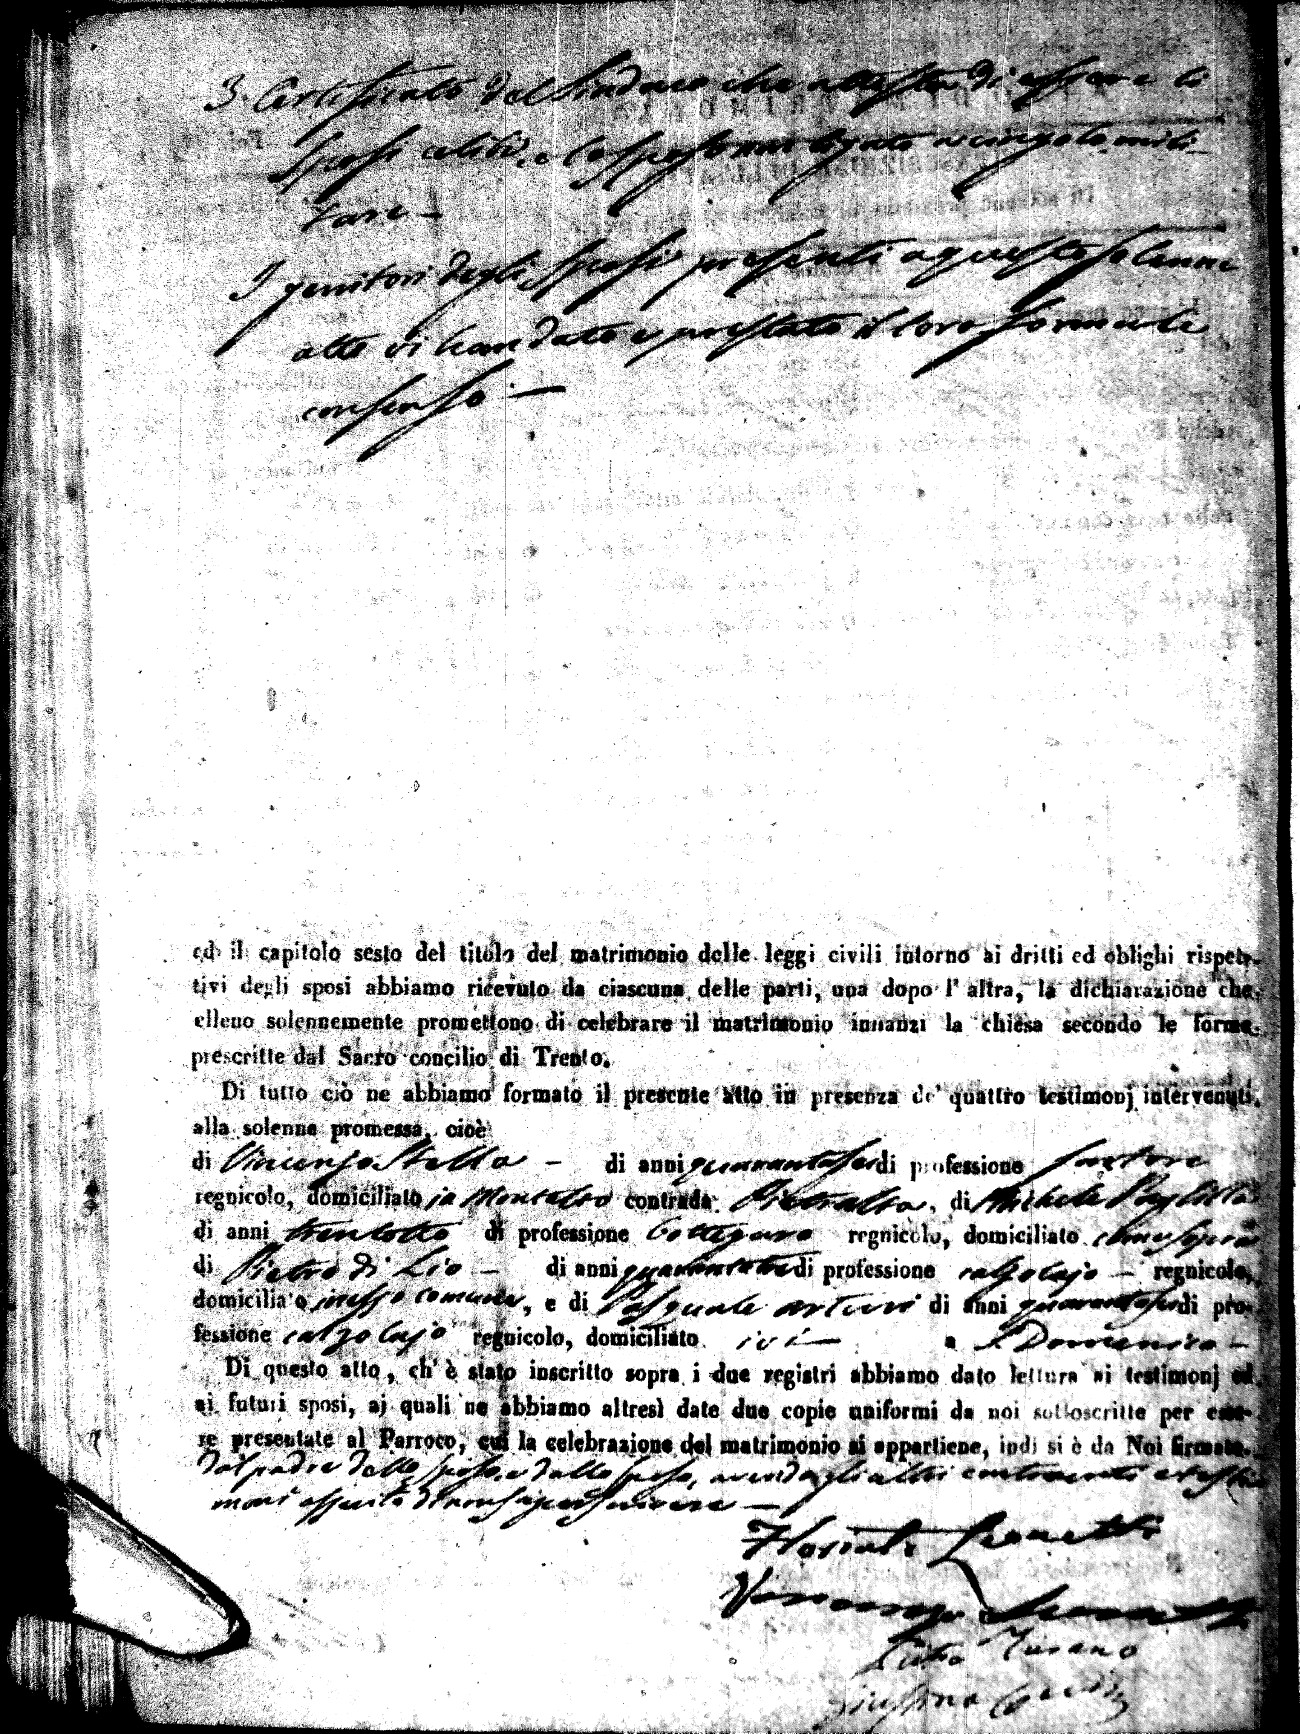 3. Certificato del Sindaco che attesta di essere li
Sposi celibi, e lo sposo non legato a cingolo mili-
tare —
I genitori degli Sposi presenti a questo solenne
atto vi han dato e prestato il loro formale
consenso. —
ed il capitolo sesto del titolo del matrimonio delle leggi civili intorno ai dritti ed oblighi rispet-
tivi degli sposi abbiamo ricevuto da ciascuna delle parti, una dopo l' altra, la dichiarazione che
elleno solennemente promettono di celebrare il matrimonio innanzi la chiesa secondo le forme
prescritte dal Sacro concilio di Trento.
Di tutto ciò ne abbiamo formato il presente atto in presenza de' quattro testimonj intervenuti
alla solenne promessa, cioè
di Vincenzo Stella — di anni quarantasei di professione sartore
regnicolo, domiciliato in Montalto contrada Pietralta, di Michele
di anni trentotto di professione bottegaro regnicolo, domiciliato come sopra
di Pietro di Lio — di anni di professione calzolajo — regnicolo,
domiciliato presso comune, e di Pasquale Arturi di anni quarantasei di pro-
fessione calzolajo regnicolo, domiciliato ivi — a S. Domenico —
Di questo atto, ch' è stato inscritto sopra i due registri abbiamo dato lettura ai testimonj ed
ai futuri sposi, aj quali ne abbiamo altresì date due copie uniformi da noi sottoscritte per esse-
re presentate al Parroco, cui la celebrazione del matrimonio si appartiene, indi si è da Noi firmato
dal padre dello sposo, e dallo sposo, avendo gli altri contraenti e testi-
moni asserito di non saper scrivere —
Vincenzo
Murano